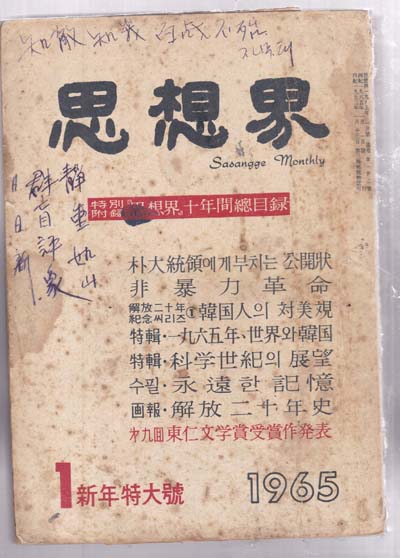 知敵知我百戰不殆
思想界
Sasangge Monthly
特別附錄 思想界 十年間總目録
靜重如山
群盲評象
日日新
朴大統領에게부치는 公開狀
非暴力革命
解放二十年紀念씨리즈 ① 韓国人의 対美観
特輯・一九六五年、世界와韓国
特輯・科学世紀의展望
수필・永遠한記憶
画報・解放二十年史
第九回 東仁文学賞受賞作発表
1 新年特大號
1965